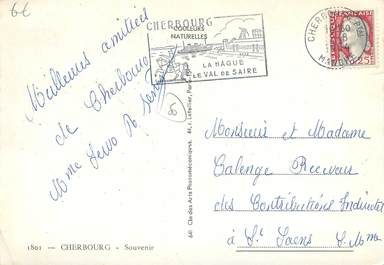 6€
CHERBOURG
COULEURS
NATURELLES
LA HAGUE
LE VAL DE SAIRE
CHERBOURG
MANCHE
FRANÇAISE
0,25F
Meilleures amitiés
de Cherbourg
Mme
Monsieur et Madame
Calenge Receveur
des Contributions Indirectes
à St Saens S. Mme
Cie des Arts Photomécaniques, 44, r. Letellier, Paris
1801 — CHERBOURG - Souvenir